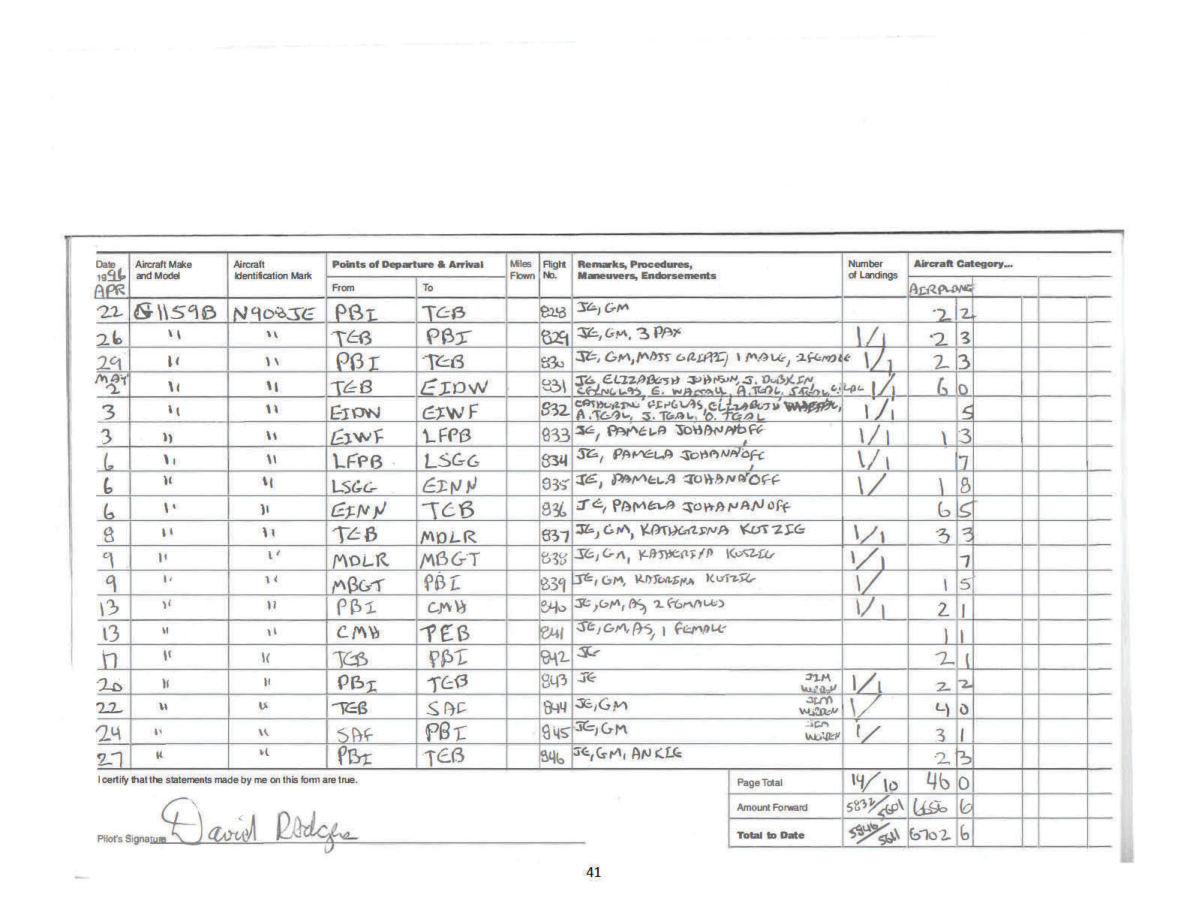 Date Aircraft Make Aircraft Points of Departure & Arrival Miles Flight Remarks, Procedures, Number Aircraft Category...
1996 and Model Identification Mark Flown No. Maneuvers, Endorsements of Landings
APR From To AIRPLANE
22 G1159B N908JE PBI TEB 828 JE, GM 2 2
26 " " TEB PBI 829 JE, GM, 3 PAX 1/1 2 3
29 " " PBI TEB 830 JE, GM, 1 MALE, 2 FEMALE 1/1 2 3
MAY
2 " " TEB EIDW 831 JE, ELIZABETH JOHNSON, J. DUBKIN, 1/1 6 0
E. A. TEAL,
3 " " EIDW EIWF 832 1/1 5
A. TEAL, J. TEAL, O. TEAL
3 " " EIWF LFPB 833 JE, PAMELA JOHANNOFF 1/1 1 3
6 " " LFPB LSGG 834 JE, PAMELA JOHANAOFF 1/1 7
6 " " LSGG EINN 835 JE, PAMELA JOHANAOFF 1/ 1 8
6 " " EINN TEB 836 JE, PAMELA JOHANANOFF 6 5
8 " " TEB MDLR 837 JE, GM, KATHERINA KOTZIG 1/1 3 3
9 " " MDLR MBGT 838 JE, GM, KATHERINA KOTZIG 1/1 7
9 " " MBGT PBI 839 JE, GM, KOTZIG 1/ 1 5
13 " " PBI CMH 840 JE, GM, AS, 2 FEMALES 1/1 2 1
13 " " CMH TEB 841 JE, GM, AS, 1 FEMALE 1 1
17 " " TEB PBI 842 JE 2 1
20 " " PBI TEB 843 JE JIM 1/1 2 2
22 " " TEB SAF 844 JE, GM JIM 1/ 4 0
24 " " SAF PBI 845 JE, GM JIM 1/ 3 1
27 " " PBI TEB 846 JE, GM, ANKIE 2 3
I certify that the statements made by me on this form are true. Page Total 14/10 46 0
Amount Forward 5832/5601 6656 6
Pilot's Signature David Rodgers Total to Date 5846/5611 6702 6
41